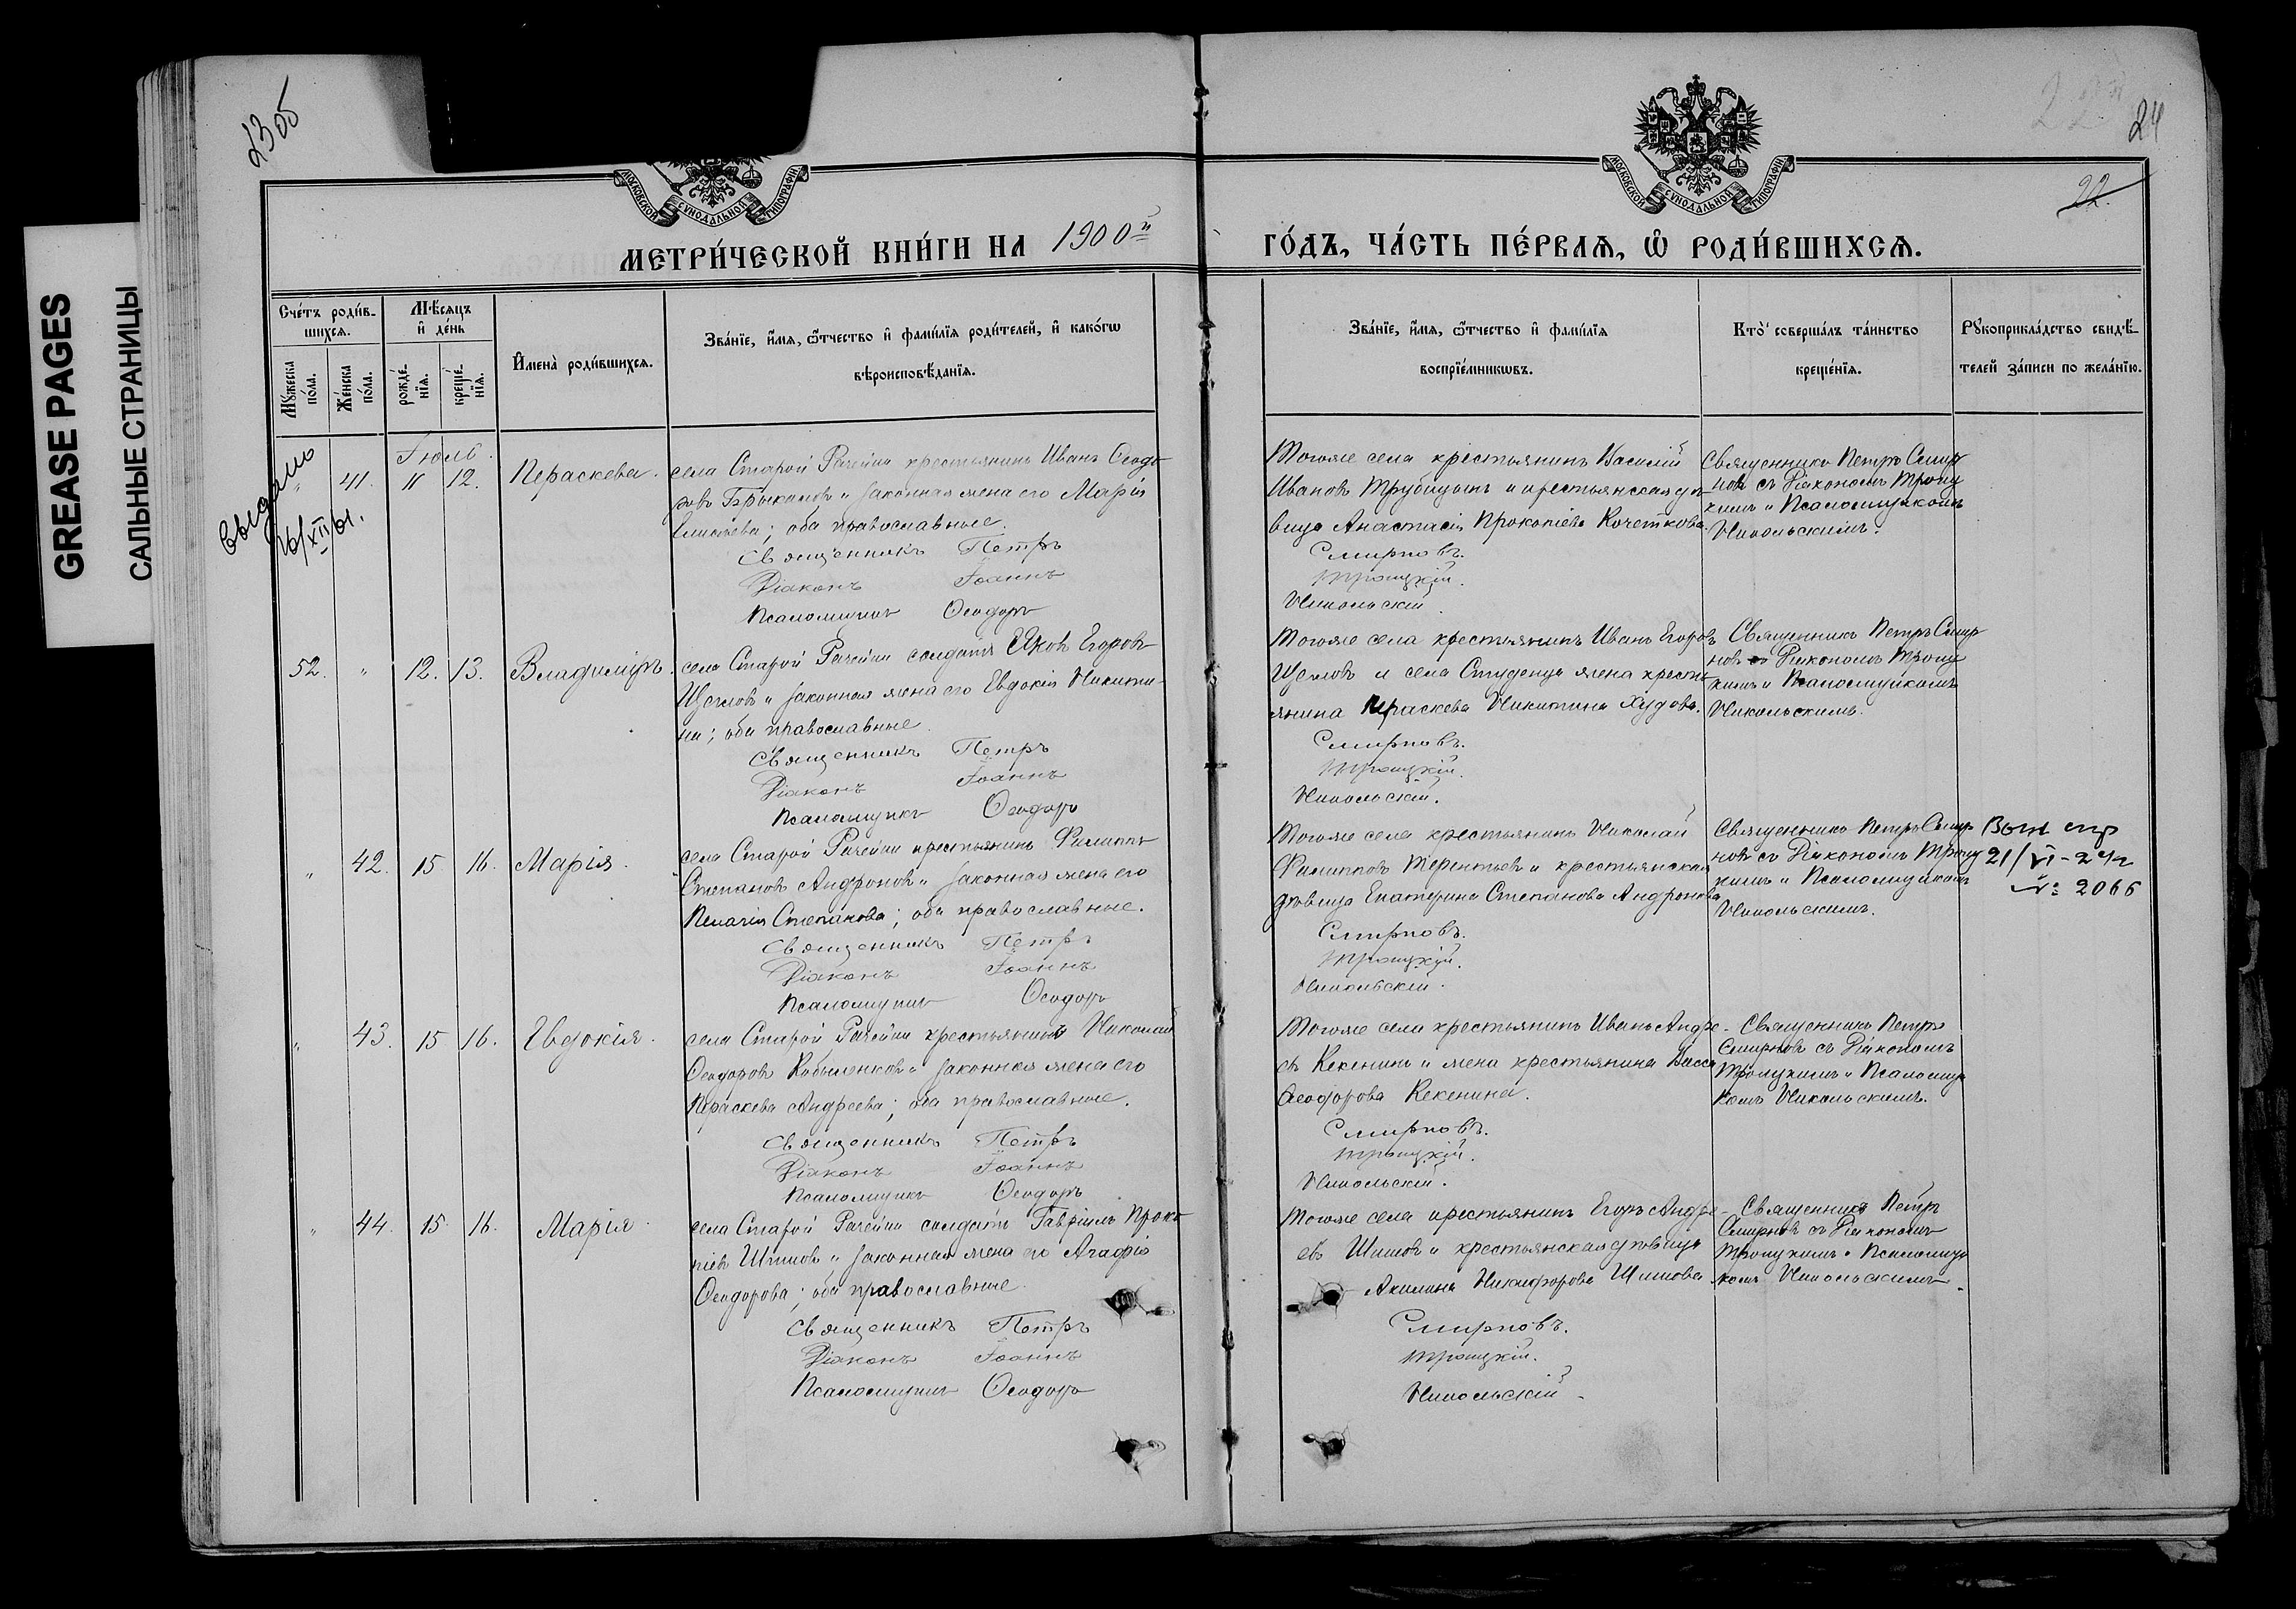 GREASE PAGES
САЛЬНЫЕ СТРАНИЦЫ
23об
24
22.
МОСКОВСКОЙ СУНОДАЛЬНОЙ ТИПОГРАФІИ
МОСКОВСКОЙ СУНОДАЛЬНОЙ ТИПОГРАФІИ
МЕТРИ́ЧЕСКОЙ КНИ́ГИ НА 1900й ГО́ДЪ, ЧА́СТЬ ПЕ́РВАѦ, Ѡ҆ РОДИ́ВШИХСѦ.
Сче́тъ роди́в-
шихсѧ.
Мѣ́сѧцъ
и҆ де́нь
Мꙋ́жеска
по́ла.
Же́нска
по́ла.
рожде́-
нїѧ.
креще́-
нїѧ.
И҆мена̀ роди́вшихсѧ.
Зва́нїе, и҆́мѧ, ѻ҆́тчество и҆ фами́лїѧ роди́телей, и҆ како́гѡ
вѣроисповѣ́данїѧ.
Зва́нїе, и҆́мѧ, ѻ҆́тчество и҆ фами́лїѧ
воспрїе́мникѡвъ.
Кто̀ соверша́лъ та́инство
креще́нїѧ.
Рꙋкоприкла́дство свидѣ́-
телей за́писи по жела́нїю.
Выдано
Іюль.
" 41. 11 12. Параскева.
села Старой Рачейки крестьянинъ Иванъ Ѳеодо-
ровъ Брыкаловъ и законная жена его Марія
Елисѣева; оба православные.
Священникъ Петръ
Діаконъ Іоаннъ
Псаломщикъ Ѳеодоръ
Тогоже села крестьянинъ Василій
Ивановъ Трубицынъ и крестьянская дѣ-
вица Анастасія Прокопіева Кочеткова.
Смирновъ.
Троицкій.
Никольскій.
Священникъ Петръ Смир-
новъ съ Діакономъ Троиц-
кимъ и Псаломщикомъ
Никольскимъ.
52. " 12. 13. Владиміръ.
села Старой Рачейки солдатъ Яковъ Егоровъ
Щегловъ и законная жена его Евдокія Никити-
на; оба православные
Священникъ Петръ
Діаконъ Іоаннъ
Псаломщикъ Ѳеодоръ
Тогоже села крестьянинъ Иванъ Егоровъ
Щегловъ и села Студенца жена крестьянина
Параскева Никитина Худова.
Смирновъ.
Троицкій.
Никольскій.
Священникъ Петръ Смир-
новъ съ Діакономъ Троиц-
кимъ и Псаломщикомъ
Никольскимъ.
" 42. 15 16. Марія.
села Старой Рачейки крестьянинъ Филиппъ
Степановъ Андроновъ и законная жена его
Пелагія Степанова; оба православные.
Священникъ Петръ
Діаконъ Іоаннъ
Псаломщикъ Ѳеодоръ
Тогоже села крестьянинъ Николай
Филипповъ Терентьевъ и крестьянская
дѣвица Екатерина Степанова Андронова
Смирновъ.
Троицкій.
Никольскій.
Священникъ Петръ Смир-
новъ съ Діакономъ Троиц-
кимъ и Псаломщикомъ
Никольскимъ.
21/VI-24г
№ 2066
" 43. 15 16. Евдокія.
села Старой Рачейки крестьянинъ Николай
Ѳеодоровъ Кобыленковъ и законная жена его
Параскева Андреева; оба православные.
Священникъ Петръ
Діаконъ Іоаннъ
Псаломщикъ Ѳеодоръ
Тогоже села крестьянинъ Иванъ Андре-
евъ Кекенинъ и жена крестьянина Васса
Ѳеодорова Кекенина.
Смирновъ.
Троицкій.
Никольскій.
Священникъ Петръ
Смирновъ съ Діакономъ
Троицкимъ и Псаломщи-
комъ Никольскимъ.
" 44. 15 16. Марія.
села Старой Рачейки солдатъ Гавріилъ Проко-
піевъ Шишовъ и законная жена его Агафія
Ѳеодорова; оба православные.
Священникъ Петръ
Діаконъ Іоаннъ
Псаломщикъ Ѳеодоръ
Тогоже села крестьянинъ Егоръ Андре-
евъ Шишовъ и крестьянская дѣвица
Акилина Никифорова Шишова
Смирновъ.
Троицкій.
Никольскій.
Священникъ Петръ
Смирновъ съ Діакономъ
Троицкимъ и Псаломщи-
комъ Никольскимъ.